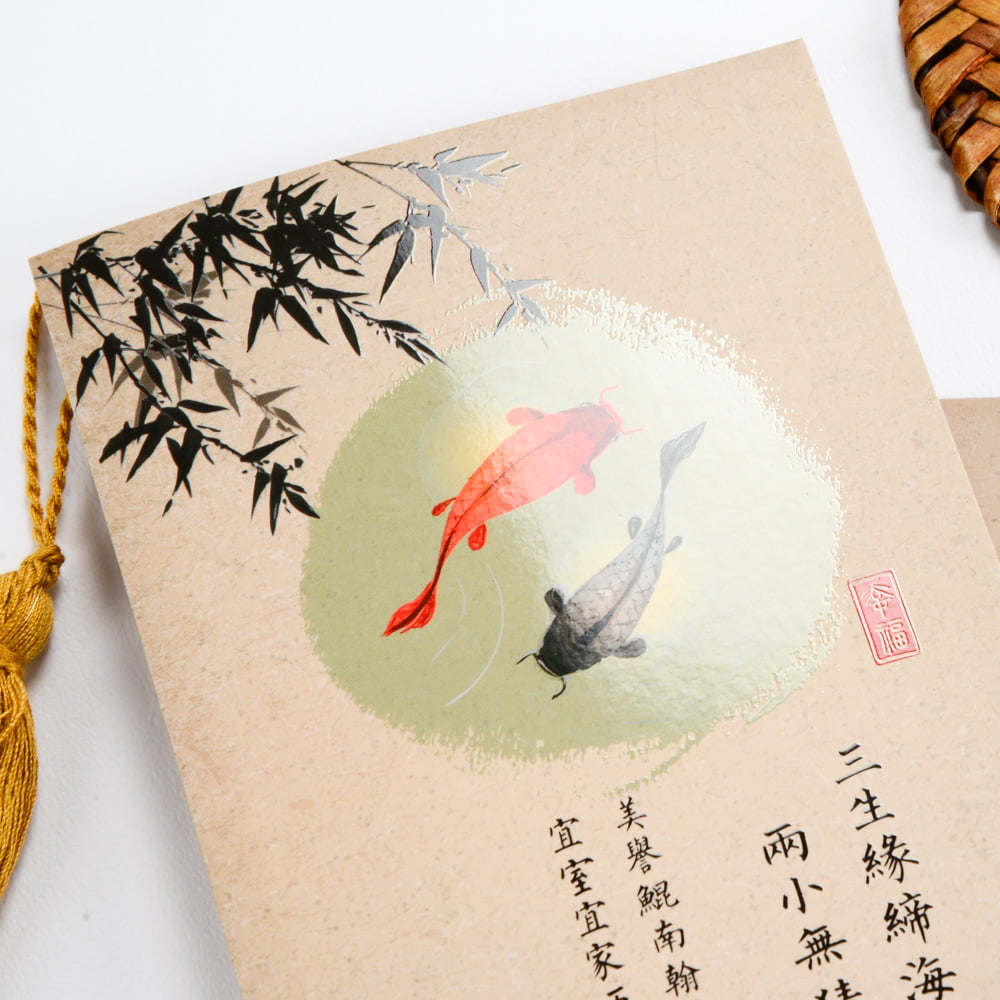 幸福
三生緣締海
兩小無
美譽鯤南翰
宜室宜家